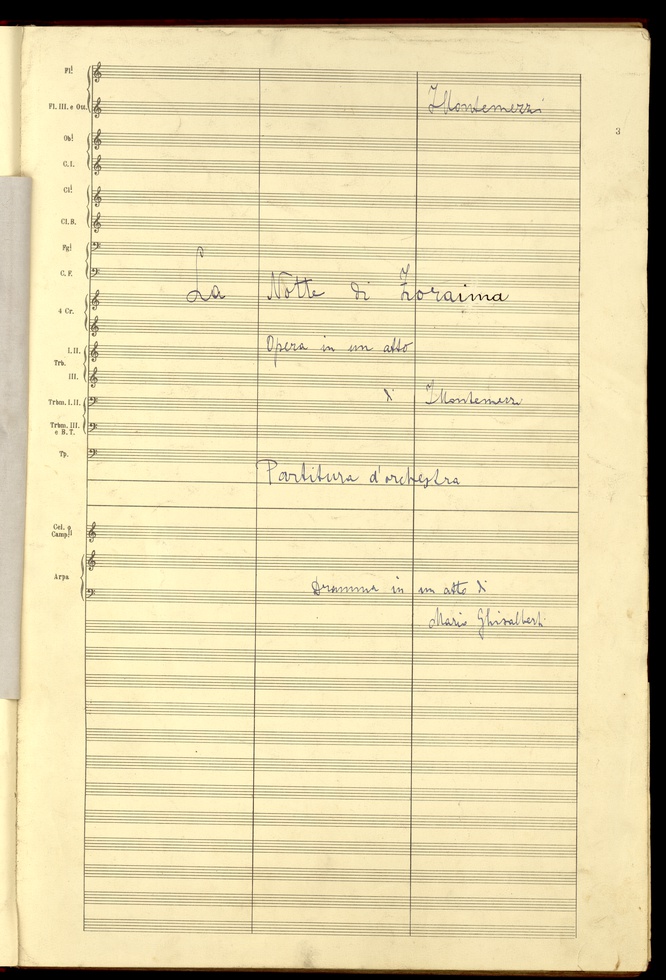 Fl!
IMontemezzi
Fl. III. e Ott.
3
Ob!
C.I.
Cl!
Cl.B.
Fg!
C.F.
La Notte di Zoraima
4 Cr.
Opera in un atto
I.II.
Trb.
III.
di IMontemezzi
Trbn. I.II.
Trbn. III.
e B.T.
Tp.
Partitura d'orchestra
Cel. e
Camp!!
Arpa
Dramma in un atto di
Mario Ghisalberti